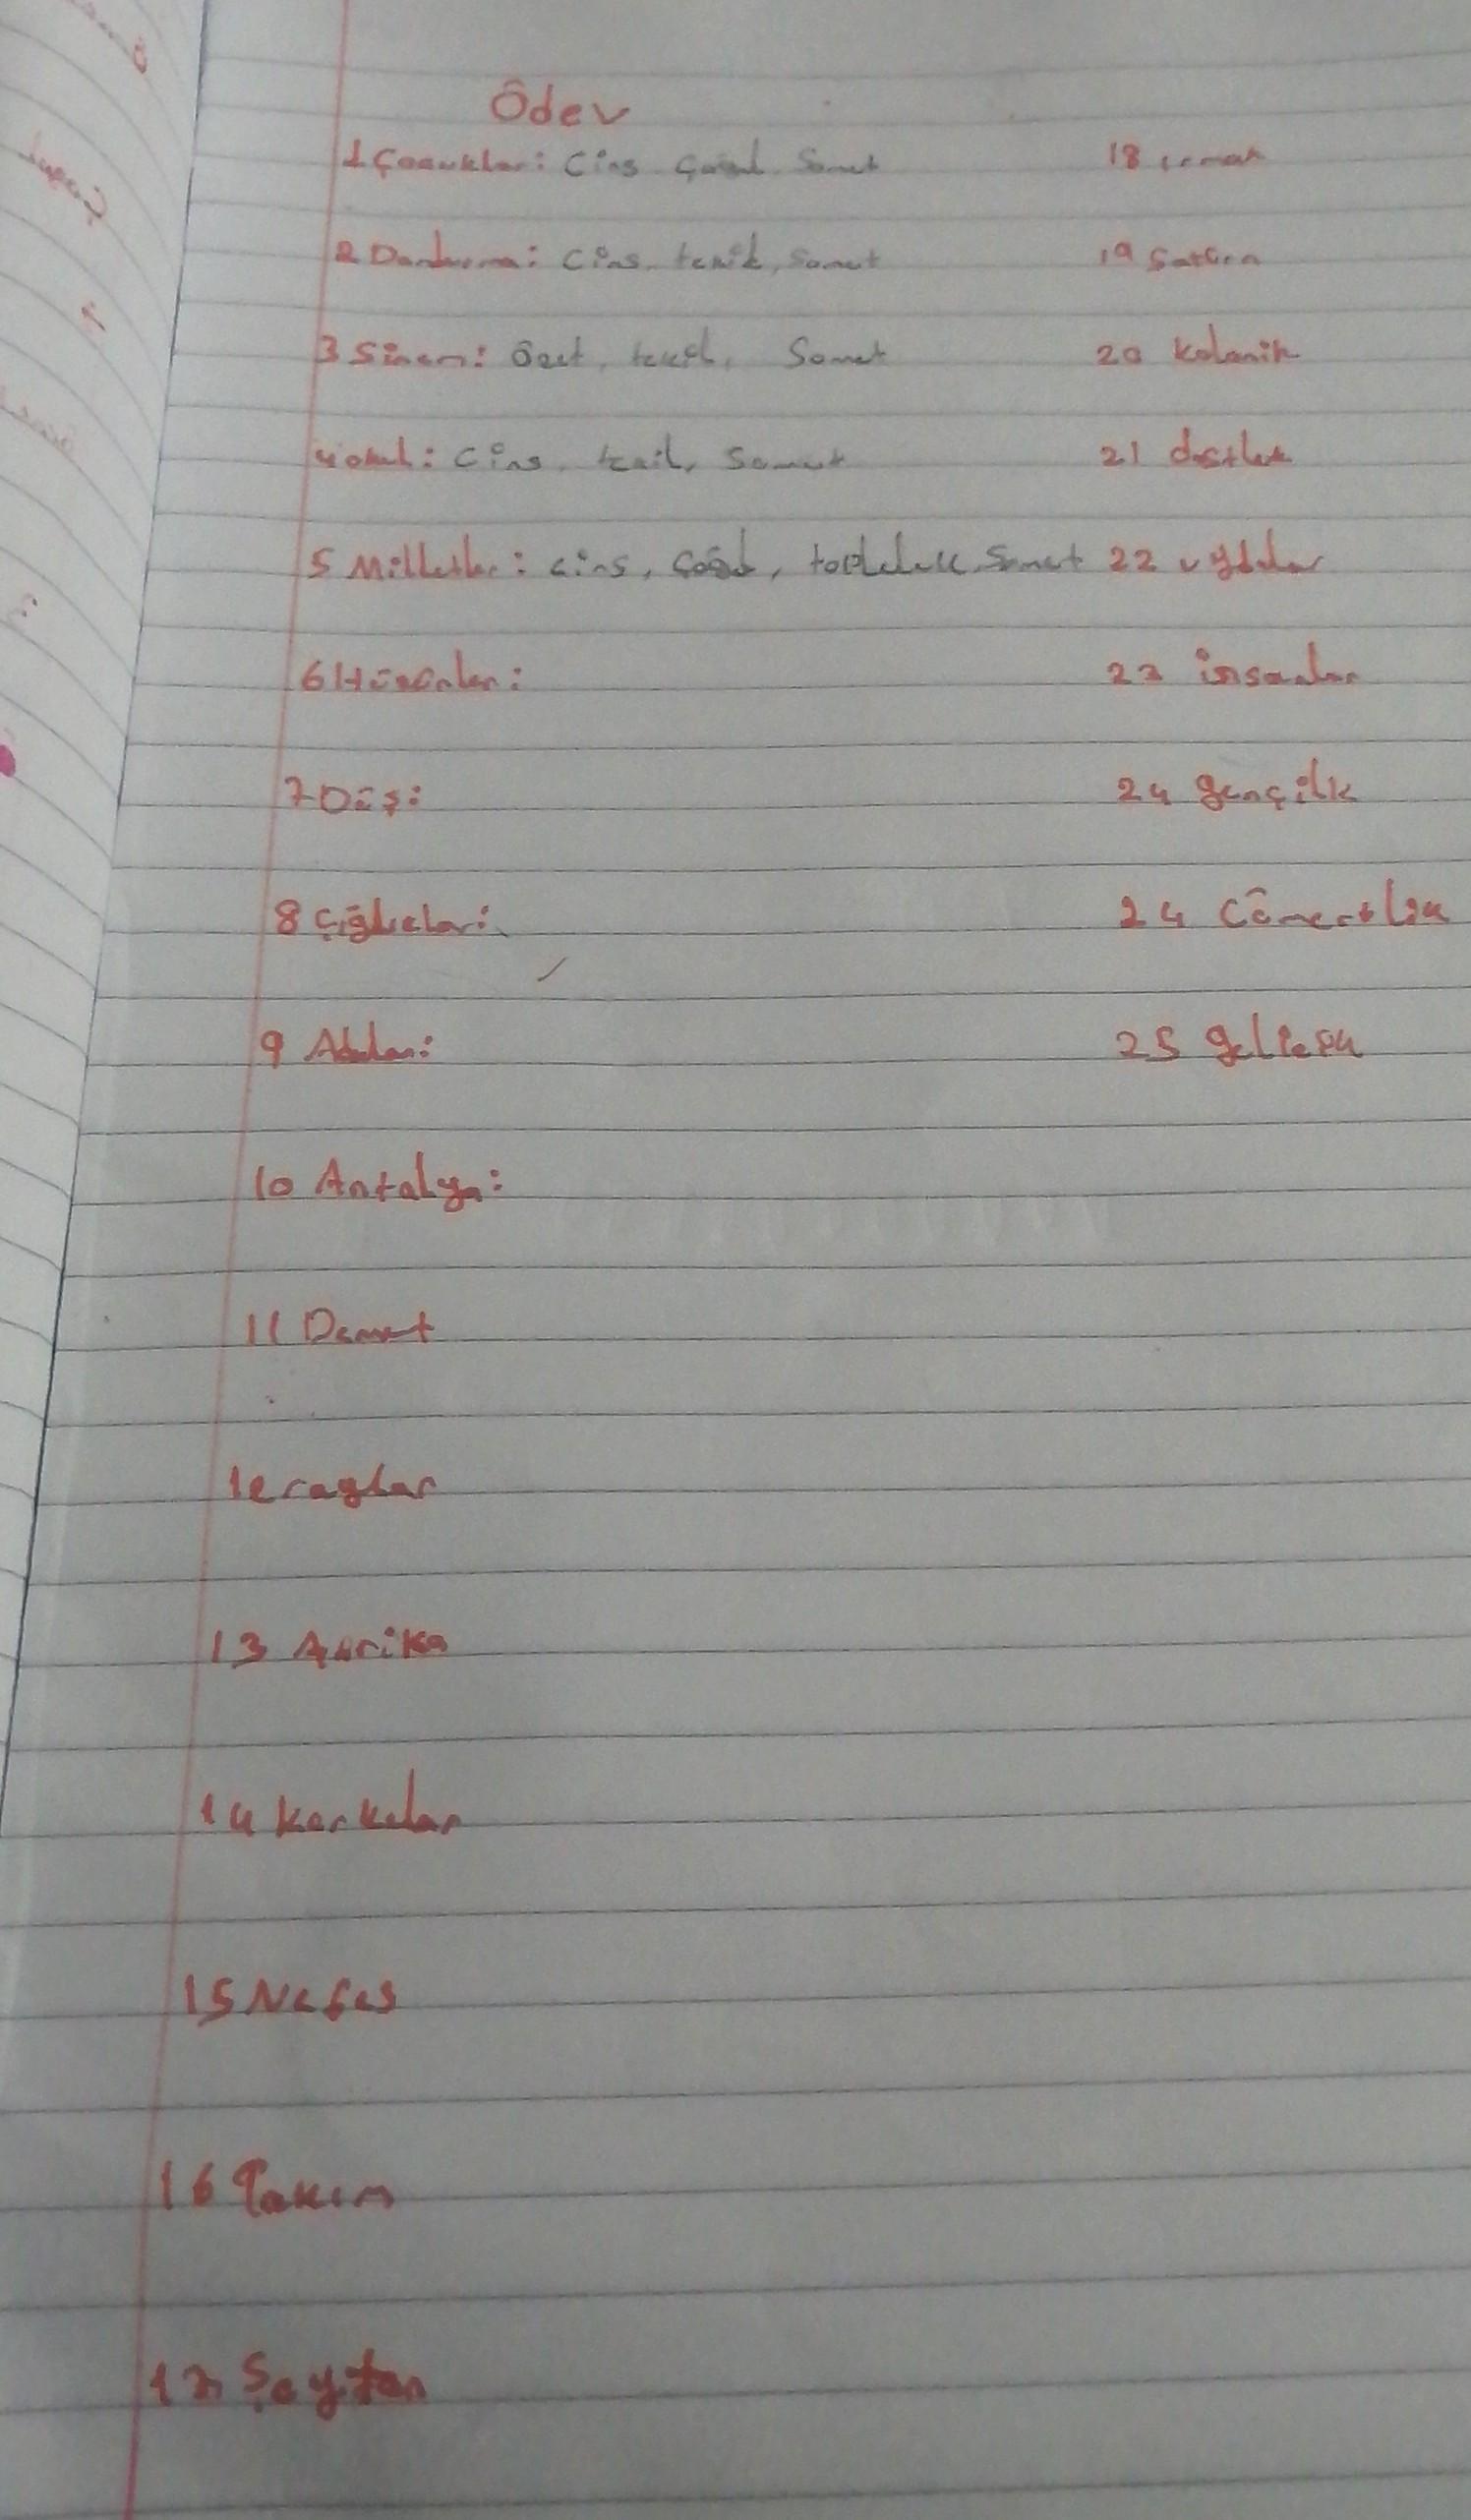 Ödev
1 Çocuklar: Cins Çoğul Somut
2 Dondurma: Cins, tekil, Somut
3 Sinem: Özel, tekil, Somut
4 okul: Cins, tekil, Somut
5 Milletler: Cins, Çoğul, topluluk, Somut
6 Hüzünler:
7 Düş:
8 Çığlıklar:
9 Adalar:
10 Antalya:
11 Demet
12 raylar
13 Afrika
14 korkular
15 Nefes
16 Takım
17 Şeytan
18 ırmak
19 Satürn
20
21 dostluk
22 uydular
23 insanlar
24 gençlik
24 Cömertlik
25